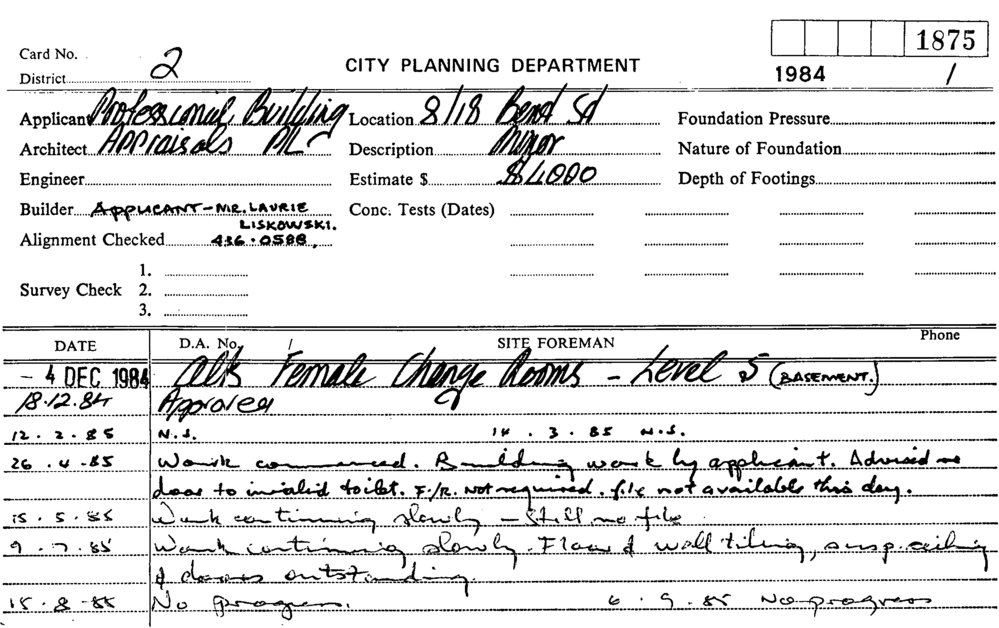 1875
Card No. 2
District
CITY PLANNING DEPARTMENT
1984 /
Applicant Professional Building Location 8/18 Bent St Foundation Pressure
Architect Appraisals P/L Description Minor Nature of Foundation
Engineer Estimate $ $4000 Depth of Footings
Builder APPLICANT - MR. LAURIE LISKOWSKI. Conc. Tests (Dates)
Alignment Checked 436.0588.
1.
Survey Check 2.
3.
DATE D.A. No. / SITE FOREMAN Phone
- 4 DEC 1984 Alts Female Change Rooms - Level 5 (BASEMENT.)
18.12.84 Approved
12.2.85 N.S. 14.3.85 N.S.
26.4.85 Work commenced. Building work by applicant. Advised re
door to invalid toilet. F/R. not required. file not available this day.
15.5.85 Work continuing slowly - Still no file
9.7.85 Work continuing slowly. Floor & wall tiling, susp. ceiling
& doors outstanding.
15.8.85 No progress. 6.9.85 No progress